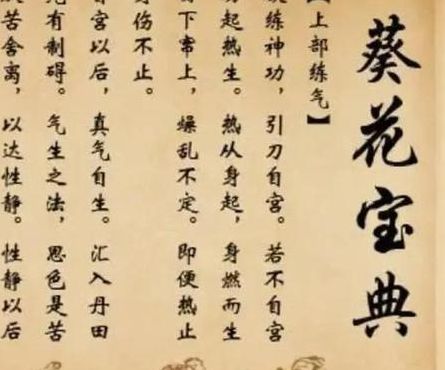 葵花宝典
【上部练气】
练神功，引刀自宫。若不自宫
起热生。热从身起，身燃而生
下帝上，燥乱不定。即便热止
伤不止。
宫以后，真气自生。汇入丹田
有制碍。气生之法，思色是苦
苦舍离，以达性静。性静以后